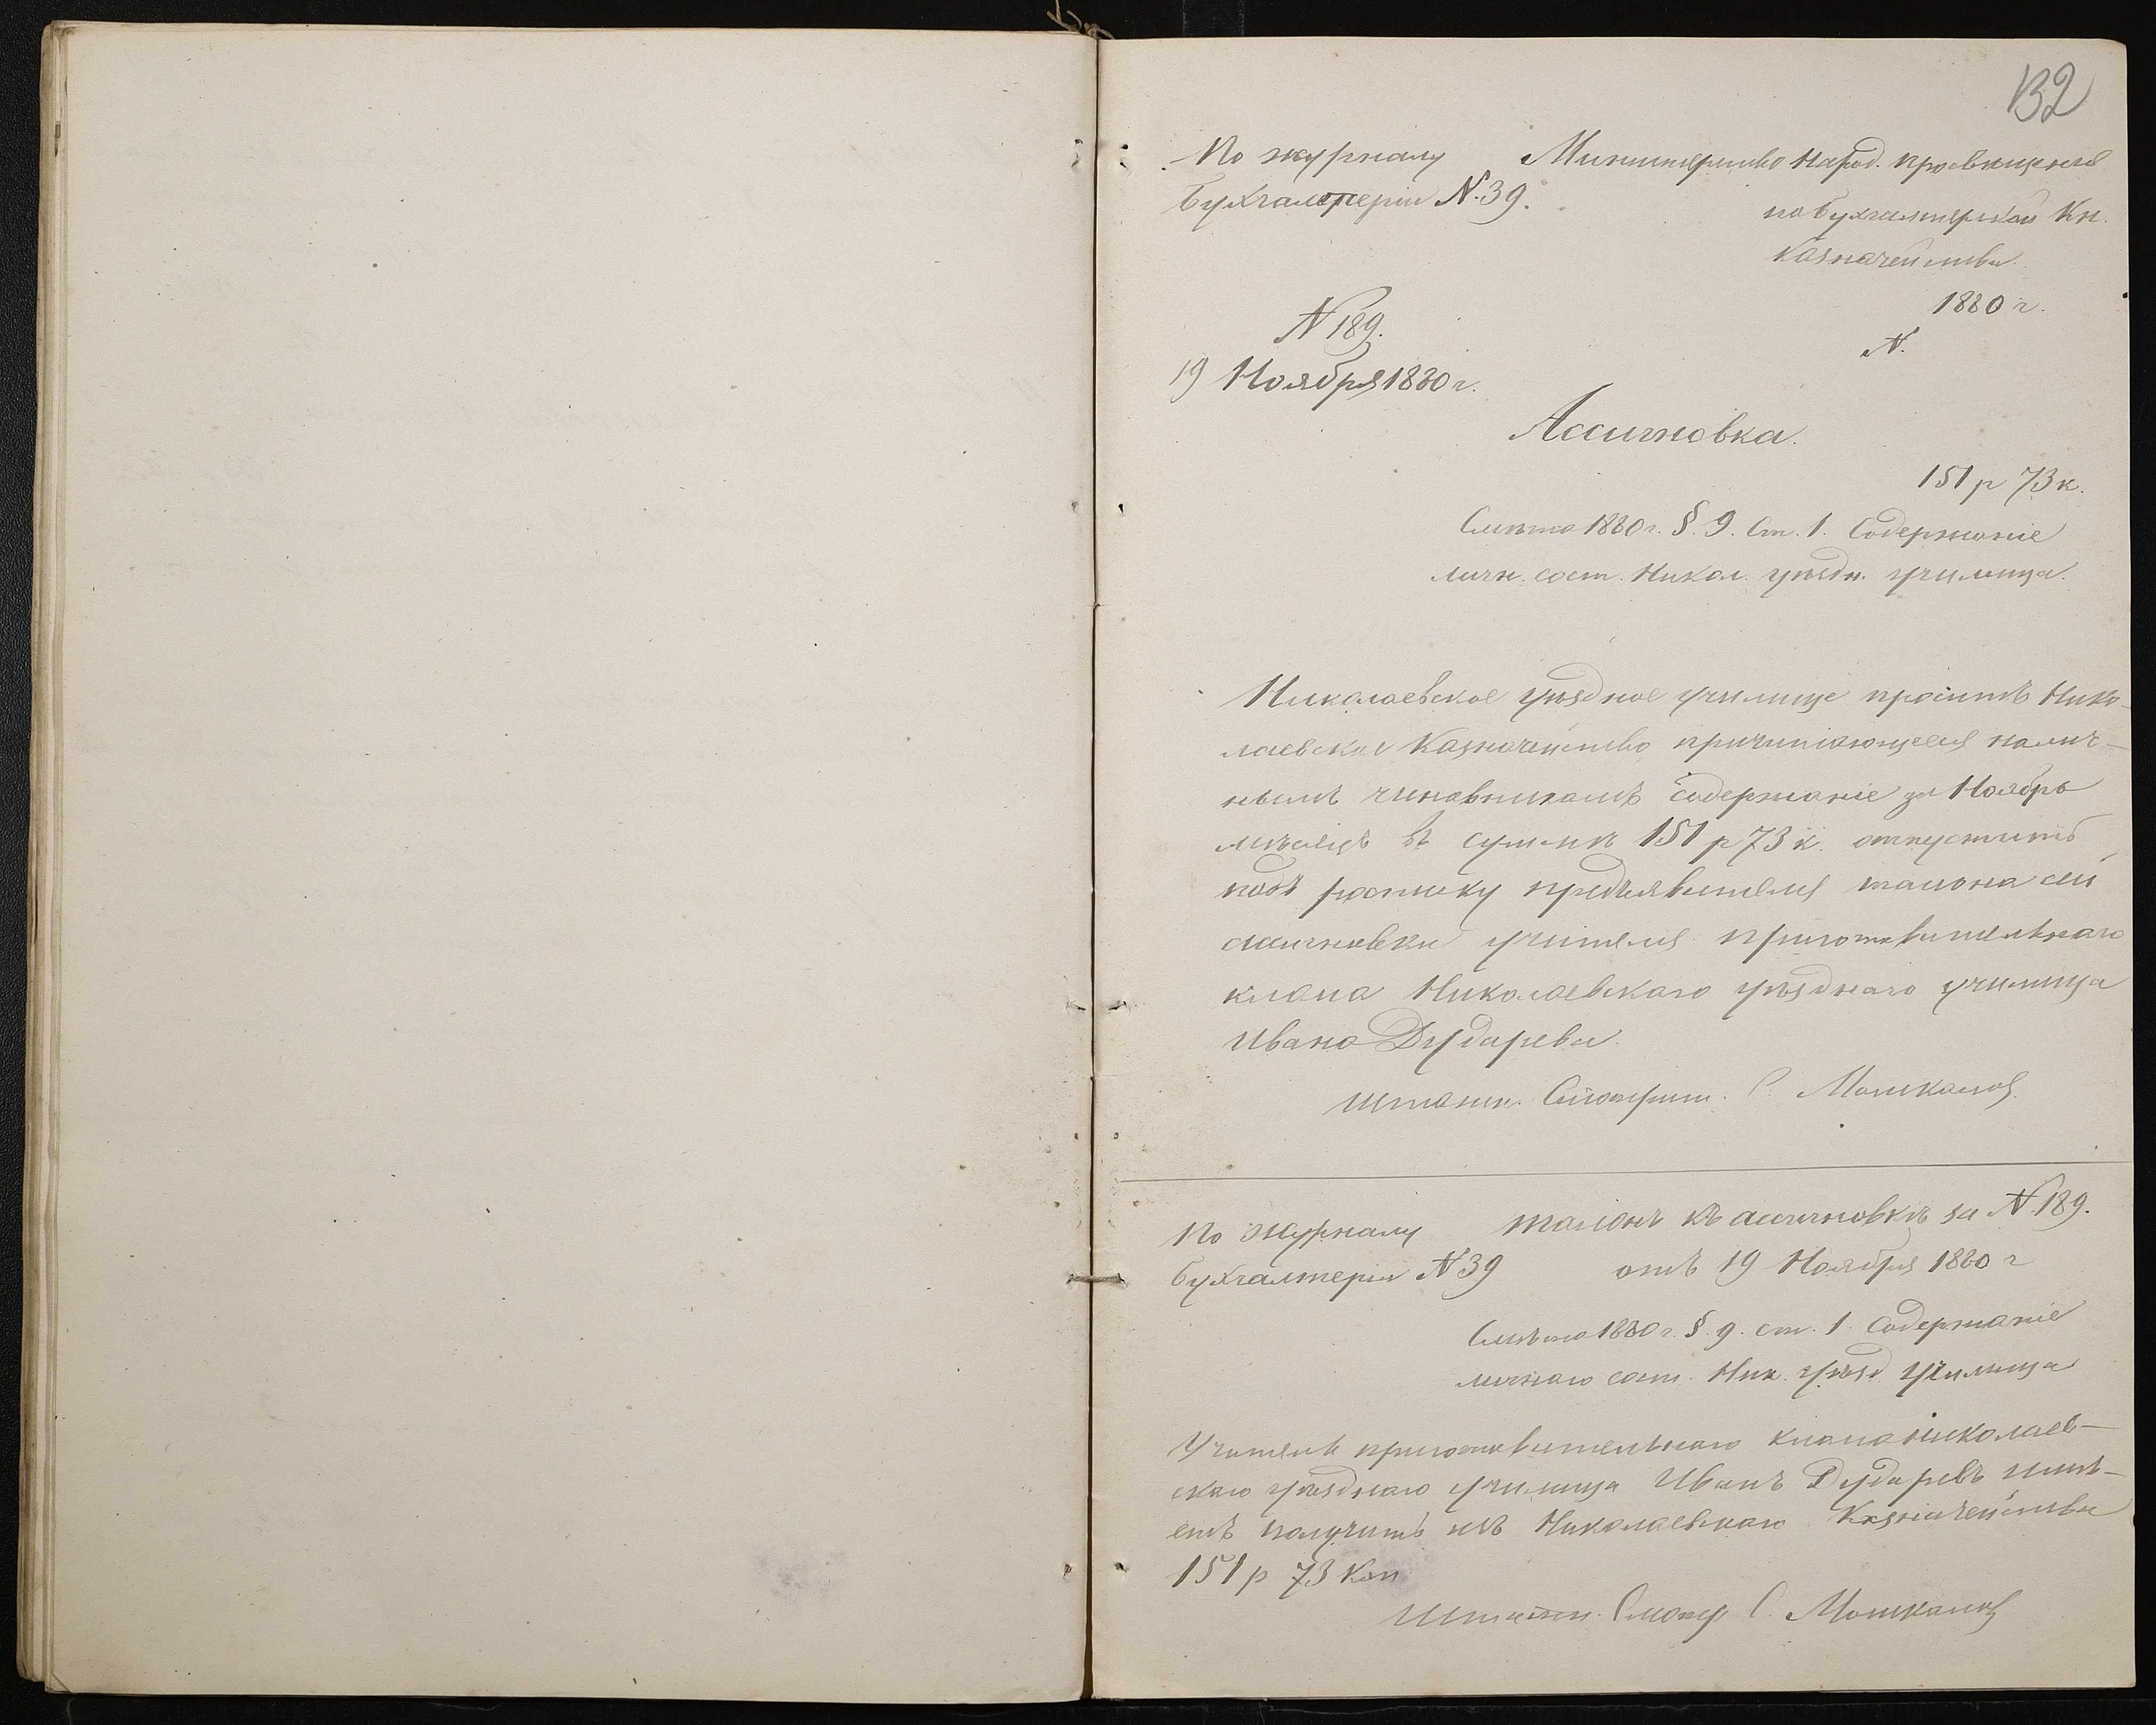 132
По журналу
Бухгалтеріи N. 39.
Министерство Народ. просвѣщенія
по бухгалтерской Кн.
Казначейства
1880 г.
N.
N 189.
19 Ноября 1880 г.
Ассигновка.
151 р 73 к.
Смѣта 1880 г. §. 9. Ст. 1. Содержаніе
личн. сост. Никол. уѣздн. училища.
Николаевское уѣздное училище проситъ Нико-
лаевское Казначейство причитающееся налич-
нымъ чиновникамъ содержаніе за Ноябрь
мѣсяцъ въ суммѣ 151 р 73 к. отпустить
подъ росписку предъявителя талона сей
ассигновки учителя приготовительнаго
класса Николаевскаго уѣзднаго училища
Ивана Дударева.
Штатн. Смотрит. С. Мошкалов
По журналу
бухгалтеріи N 39
Талонъ къ ассигновкѣ за N. 189.
отъ 19 Ноября 1880 г
Смѣта 1880 г. §. 9. ст. 1. Содержаніе
личнаго сост. Ник. уѣзд. училища
Учитель приготовительнаго класса Николаев-
скаго уѣзднаго училища Иванъ Дударевъ имѣ-
етъ получить изъ Николаевскаго Казначейства
151 р 73 коп
Штатн. Смотр С. Мошкалов